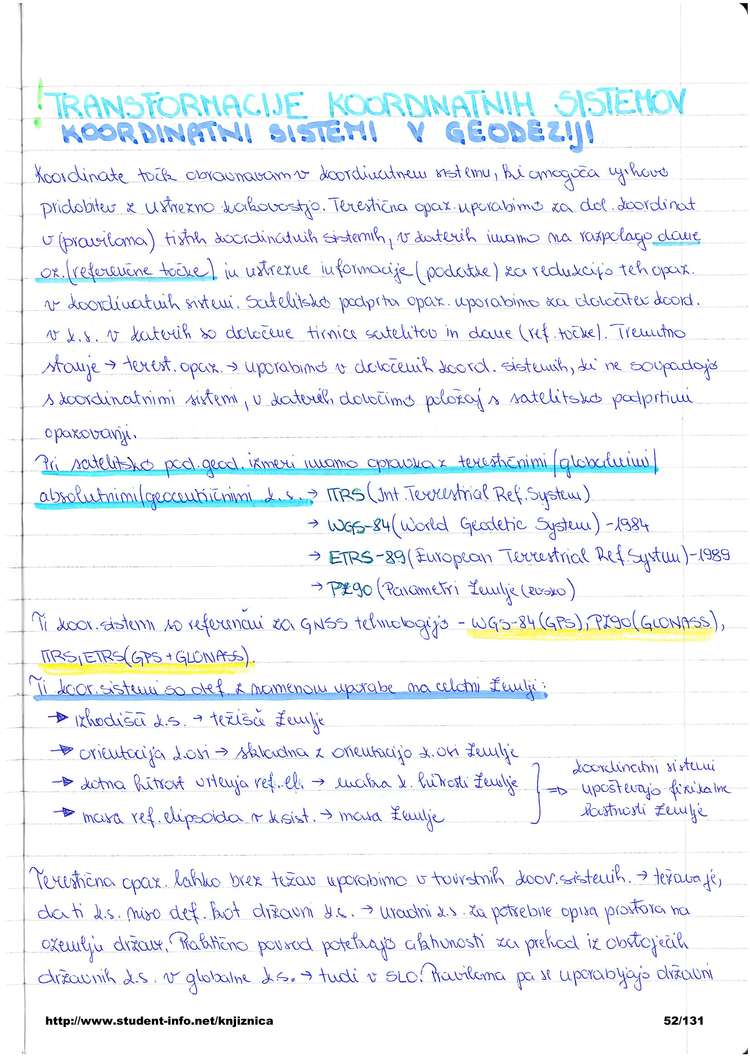 ! TRANSFORMACIJE KOORDINATNIH SISTEMOV
KOORDINATNI SISTEMI V GEODEZIJI
Koordinate točk obravnavam v koordinatnem sistemu, ki omogoča njihovo
pridobitev z ustrezno kakovostjo. Terestična opaz. uporabimo za dol. koordinat
v (praviloma) tistih koordinatnih sistemih, v katerih imamo na razpolago dane
oz. (referenčne točke) in ustrezne informacije (podatke) za redukcijo teh opaz.
v koordinatnih sistemi. Satelitsko podprta opaz. uporabimo za določitev koord.
v k.s. v katerih so določene tirnice satelitov in dane (ref. točke). Trenutno
stanje → terest. opaz. → uporabimo v določenih koord. sistemih, ki ne soupadajo
s koordinatnimi sistemi, v katerih določimo položaj s satelitsko podprtimi
opazovanji.
Pri satelitsko pod. geod. izmeri imamo opravka z terestičnimi/globalnimi/
absolutnimi/geocentričnimi k.s. → ITRS (Int. Terrestrial Ref. System)
→ WGS-84 (World Geodetic System) - 1984
→ ETRS-89 (European Terrestrial Ref. System) - 1989
→ PZ90 (Parametri Zemlje (rusko)
Ti koor. sistemi so referenčni za GNSS tehnologijo - WGS-84 (GPS), PZ90 (GLONASS),
ITRS, ETRS (GPS + GLONASS).
Ti koor. sistemi so def. z namenom uporabe na celotni Zemlji:
→ izhodišči k.s. → težišče Zemlje
→ orientacija k. osi → skladna z orientacijo k. osi Zemlje
→ kotna hitrost vrtenja ref. el. → enaka k. hitrosti Zemlje
→ masa ref. elipsoida v k.sist. → masa Zemlje
⇒ koordinatni sistemi
upoštevajo fizikalne
lastnosti Zemlje
Terestična opaz. lahko brez težav uporabimo v tovrstnih koor. sistemih. → težava je,
da ti k.s. niso def. kot državni k.s. → uradni k.s. za potrebne opisa prostora na
ozemlju države. Praktično povsod potekajo aktivnosti za prehod iz obstoječih
državnih k.s. v globalne k.s. → tudi v SLO! Praviloma pa se uporabljajo državni
http://www.student-info.net/knjiznica
52/131